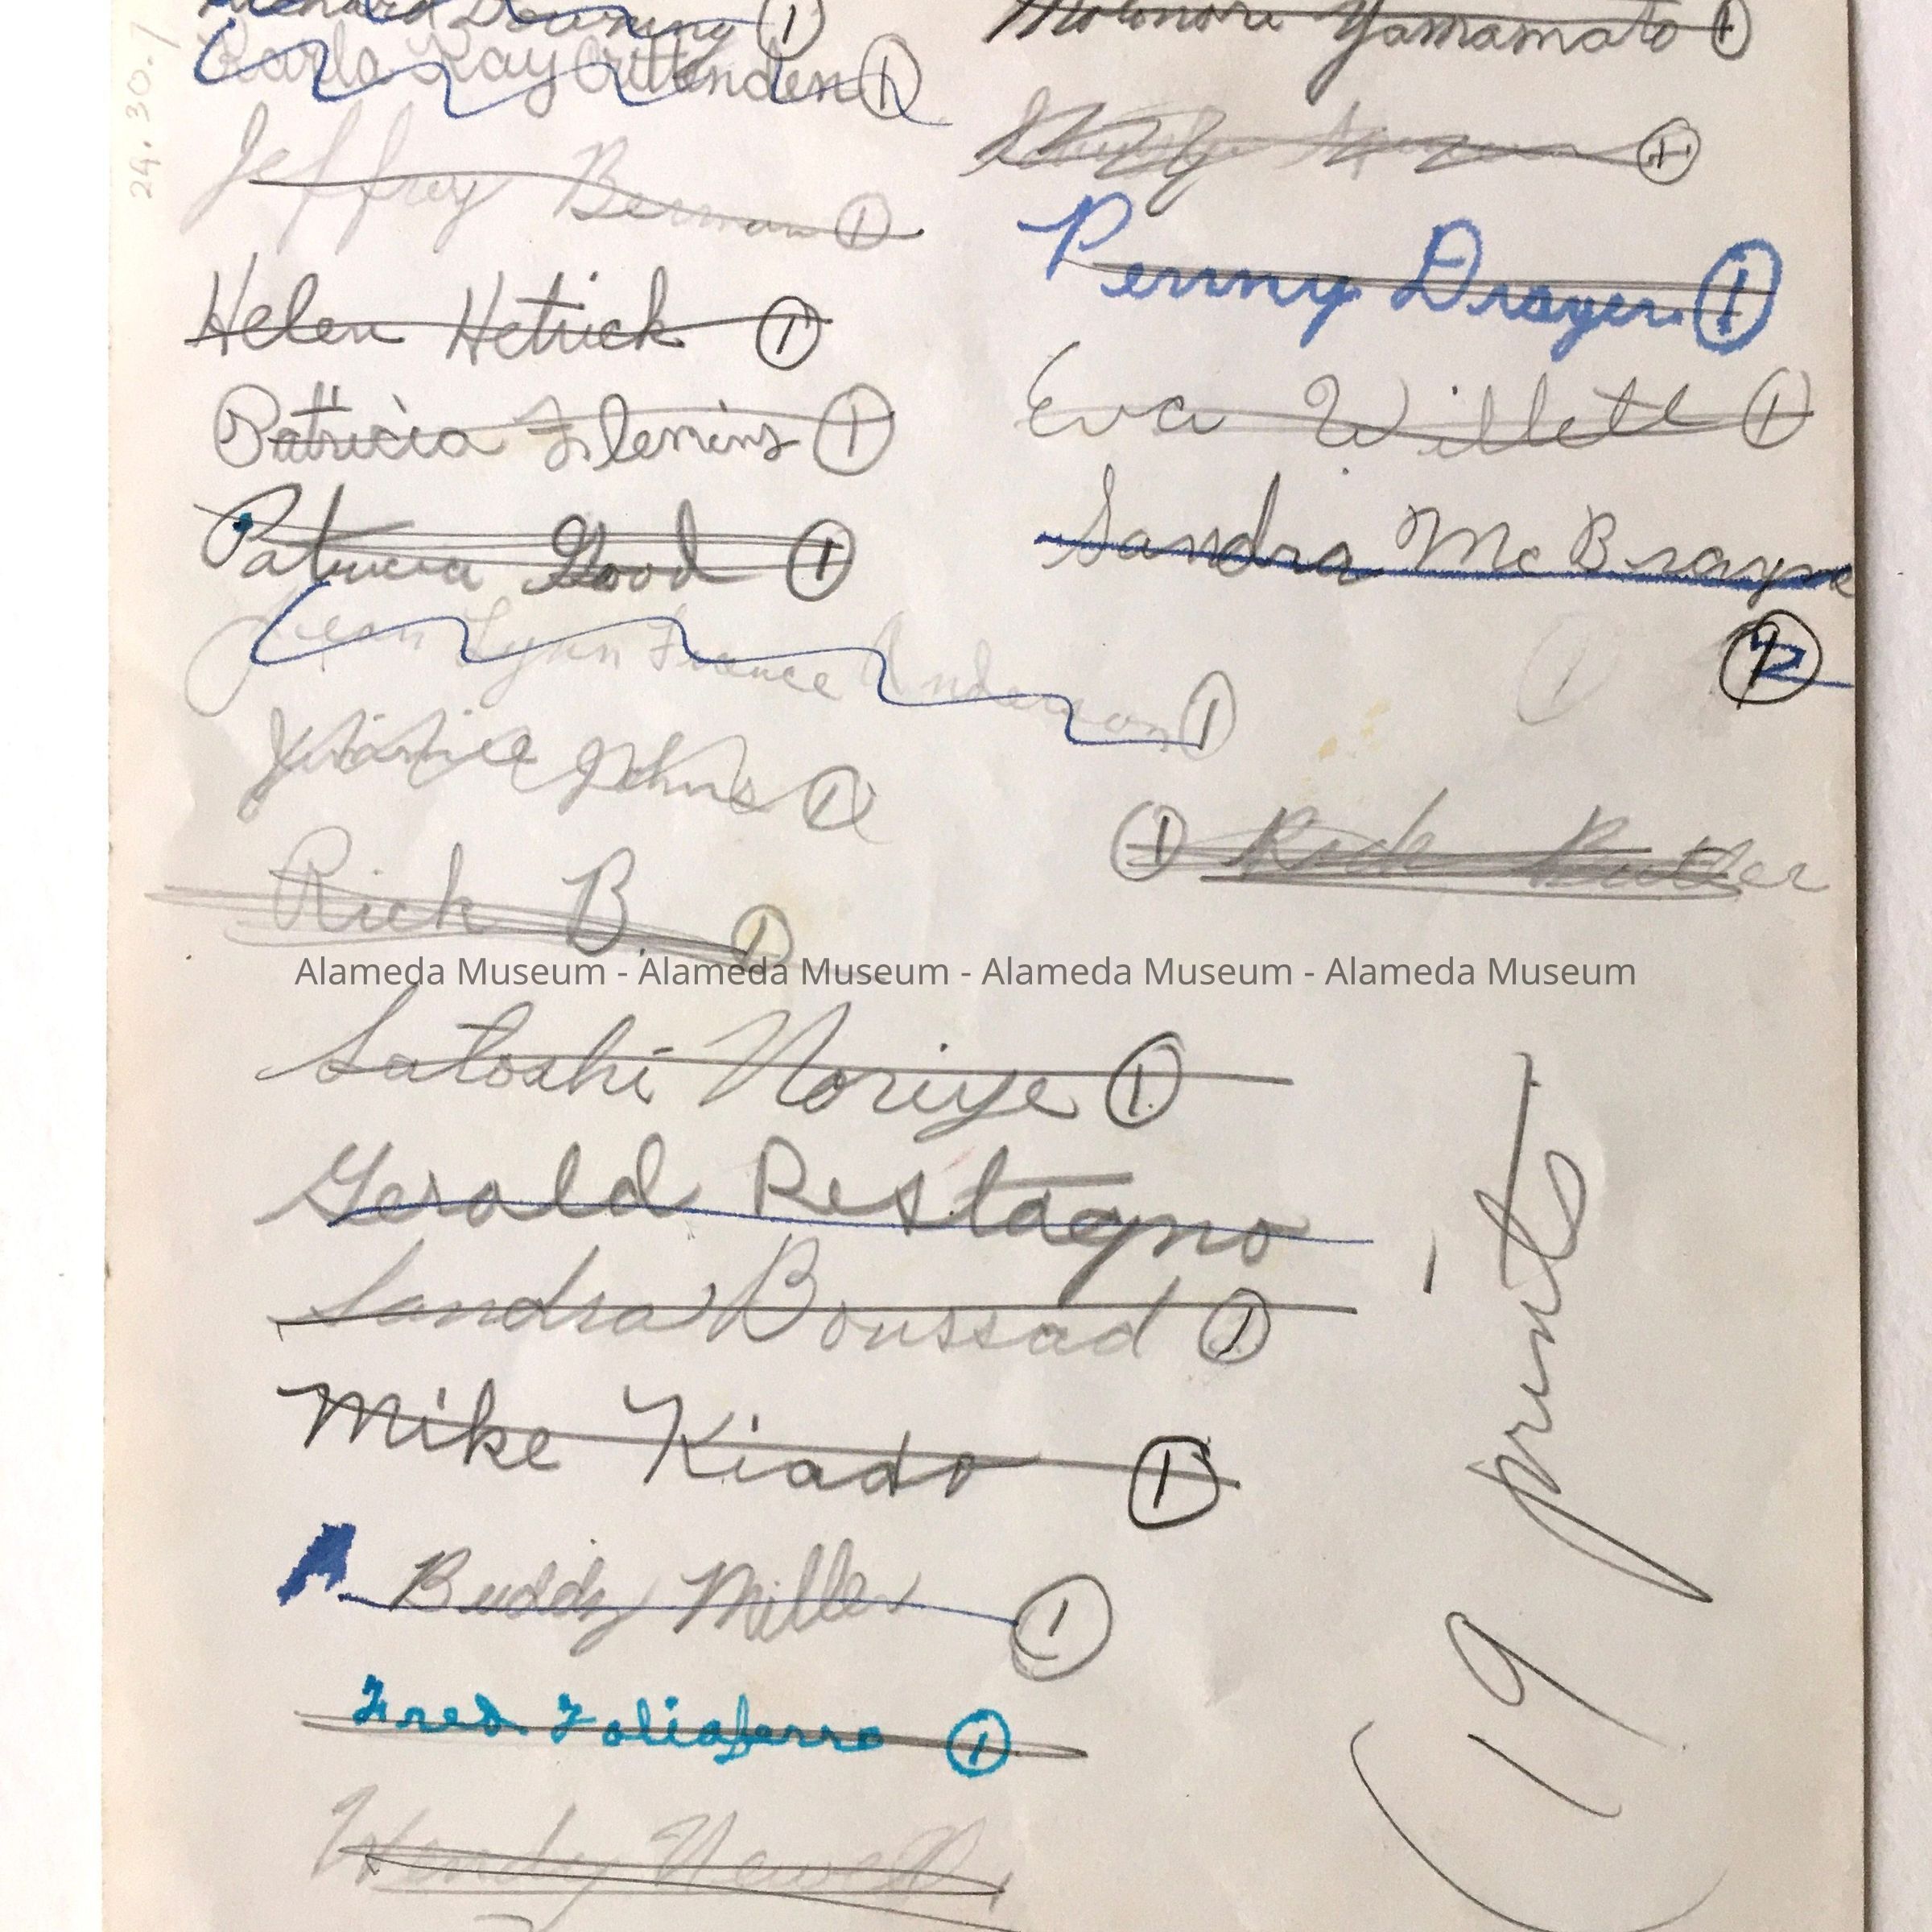 24.30.7
Richard Downing 1
Karla Kay Crittenden 1
Jeffrey Berman 1
Helen Hetrick 1
Patricia Flemins 1
Patricia Good 1
Jean Lynn France Anderson 1
Johns 1
Rick B. 1
Motonori Yamamato 1
1
Penny Drayer 1
Eva Willett 1
Sandra McBrayer
1
1 Rick Butler
Alameda Museum - Alameda Museum - Alameda Museum - Alameda Museum
Satoshi Noriye 1
Gerald Restagno
Sandra Boussad 1
Mike Kiado 1
Buddy Miller 1
Fred Foliaferro 1
Wendy
(19 prints